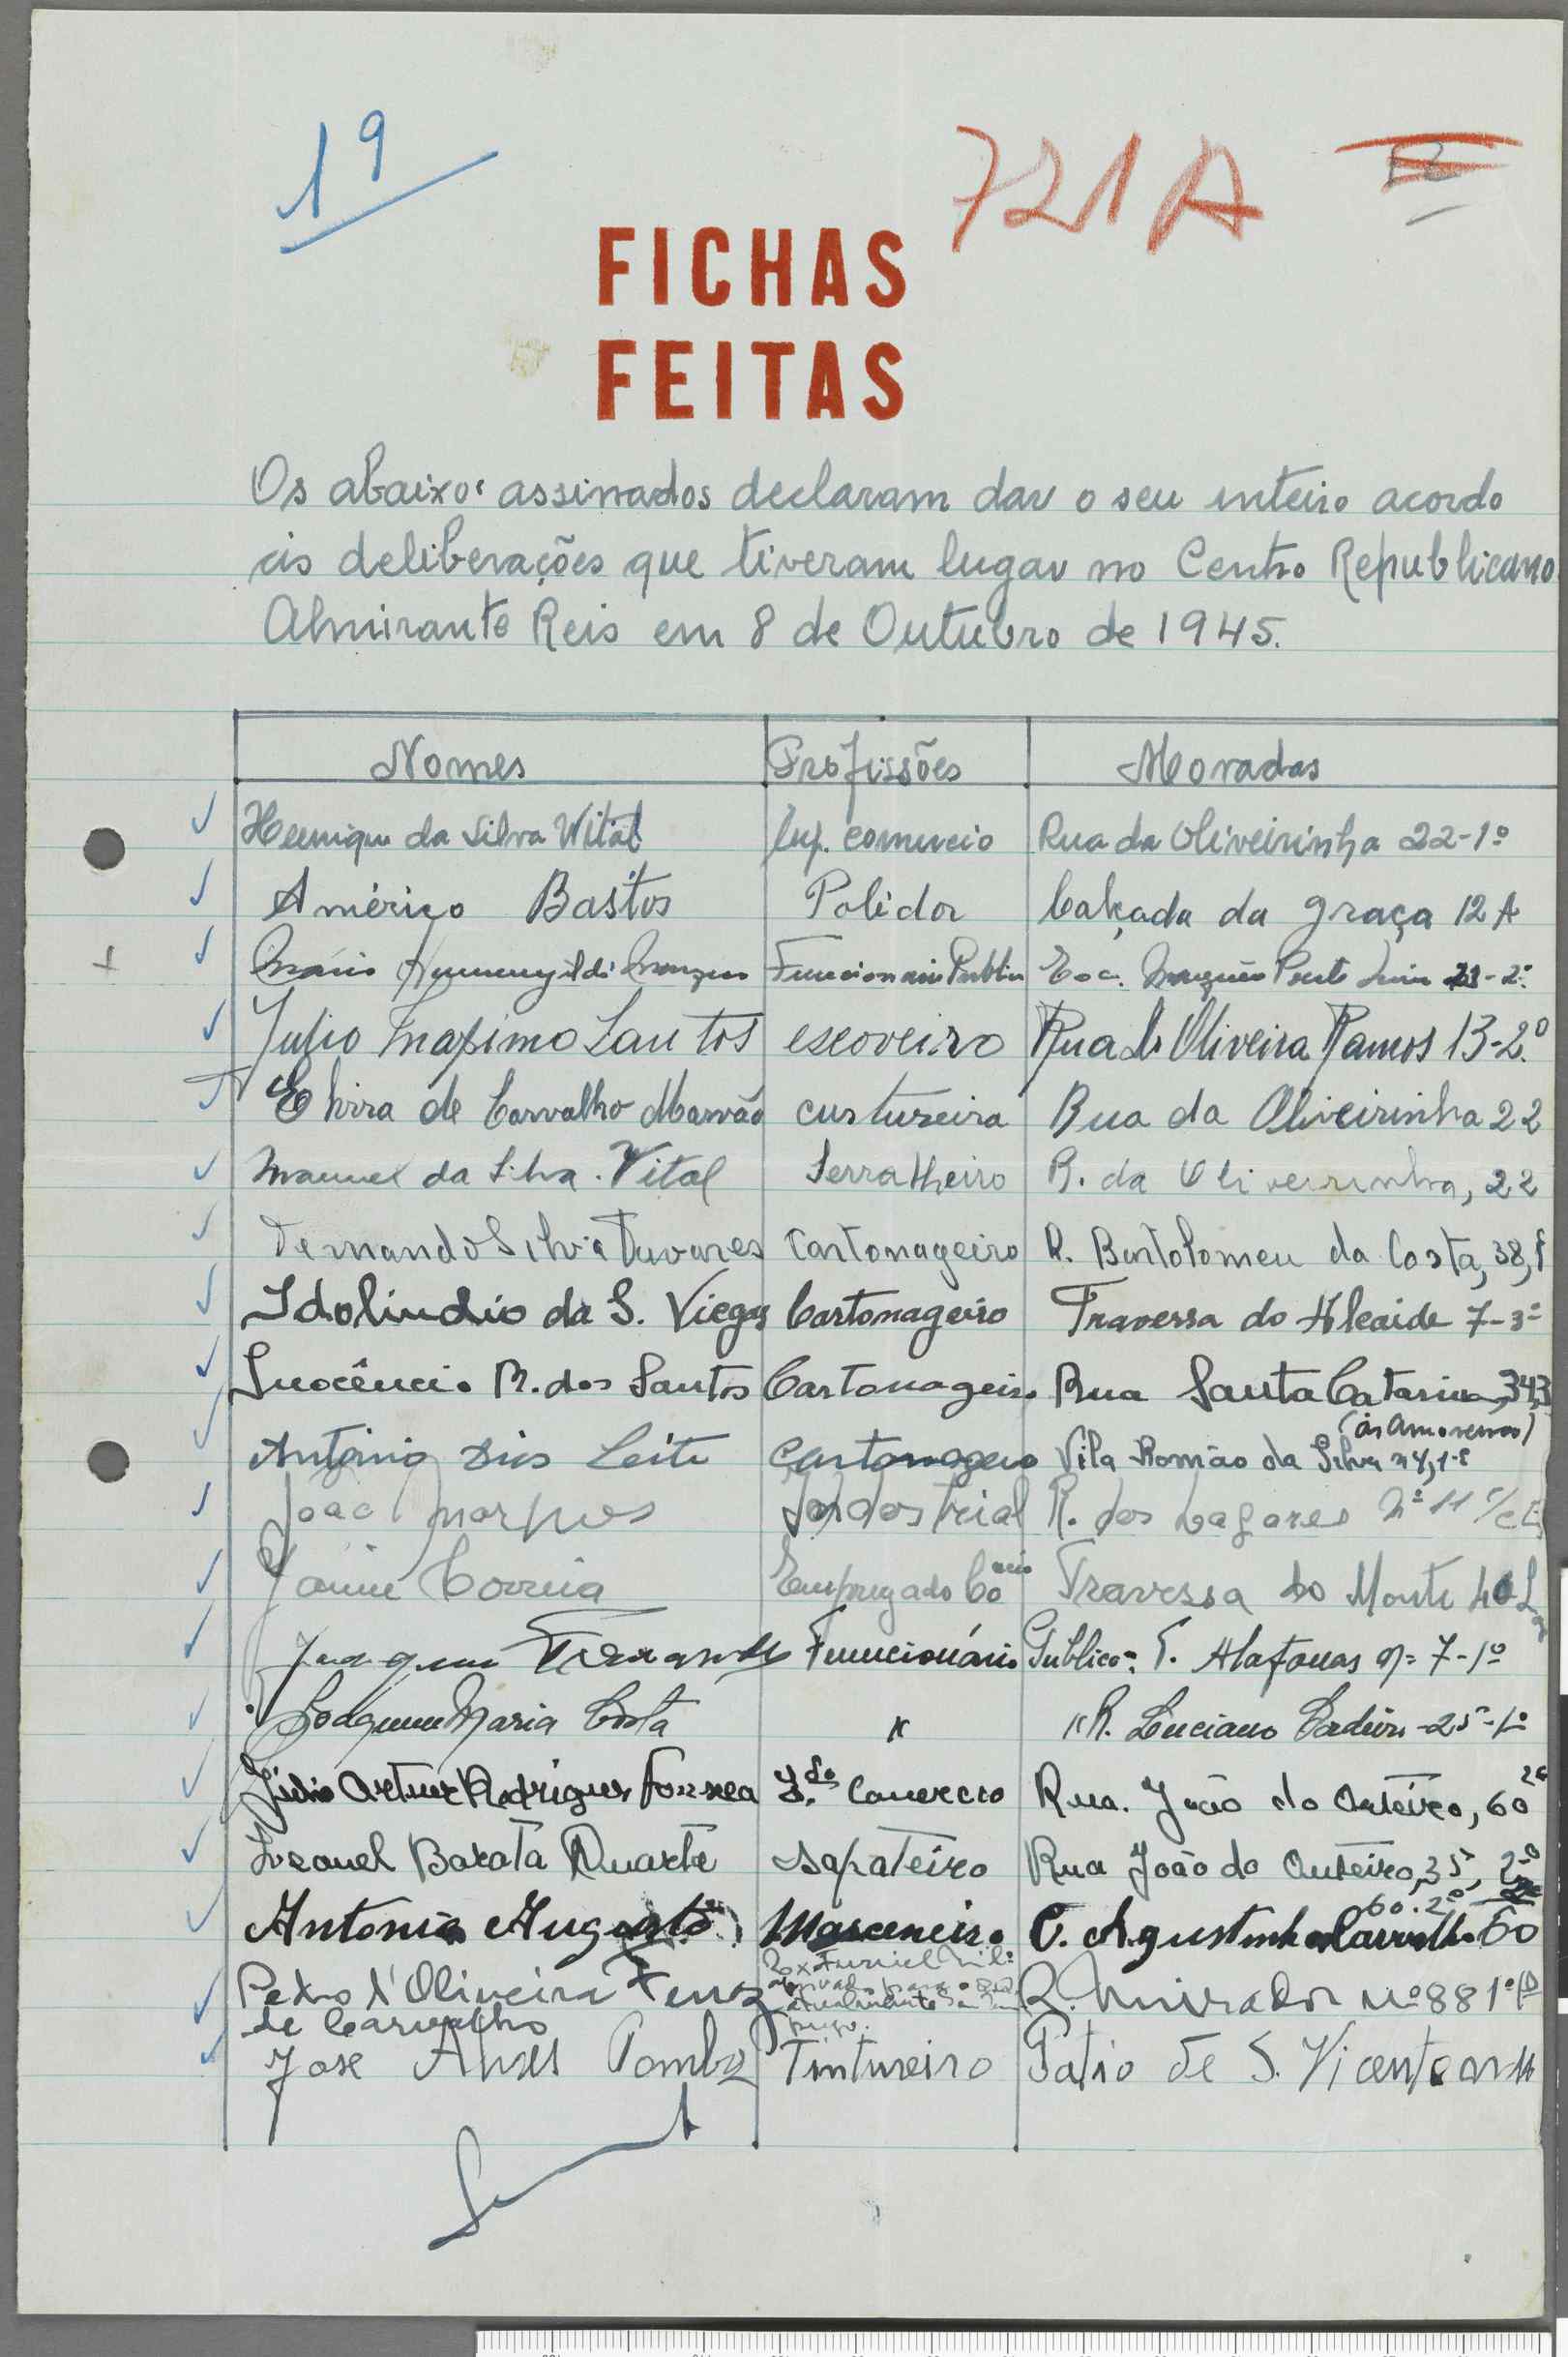 19
721 A
12
FICHAS
FEITAS
Os abaixo assinados declaram dar o seu inteiro acordo
ás deliberações que tiveram lugar no Centro Republicano
Almirante Reis em 8 de Outubro de 1945.
Nomes Profissões Moradas
Henrique da Silva Vital Emp. comercio Rua da Oliveirinha 22-1º
Américo Bastos Polidor Calçada da graça 12 A
Mário Funcionario Publico Marquês Ponte Lima 23-2º
Julio Maximo Santos escoveiro Rua de Oliveira Ramos 13-2.º
Elvira de Carvalho Marvão custureira Rua da Oliveirinha 22
Manuel da Silva Vital Serralheiro R. da Oliveirinha, 22
Fernando Silva Tavares Cartonageiro R. Bartolomeu da Costa, 38,
Idolindio da S. Viegas Cartonageiro Travessa do Alcaide 7-3º
Inocêncio R. dos Santos Cartonageiro Rua Santa Catarina, 34,3
(ás Amoreiras)
António Dias Leite Cartonageiro Vila Romão da Silva 24, 1º
João Marques Industrial R. dos Lagares Nº 11 r/c E
Jaime Correia Empregado Co Travessa do Monte 40
Joaquim Fernandes Funcionário Publico. T. Alafonas nº 7-1º
Joaquim Maria Costa " " R. Luciano Cordeiro -25-1º
Júlio Artur Rodrigues Fonseca Comercio Rua. João do Outeiro, 60 2º
Leonel Barata Duarte sapateiro Rua João do Outeiro, 35, 2º
60.2º
Antonio Augusto Marceneiro T. Agustinho Carvalho 60
Pedro d'Oliveira Ex Furriel R. Mirador nº 88 1º
de Carvalho
José Alves Pombo Tintureiro Patio de S. Vicente